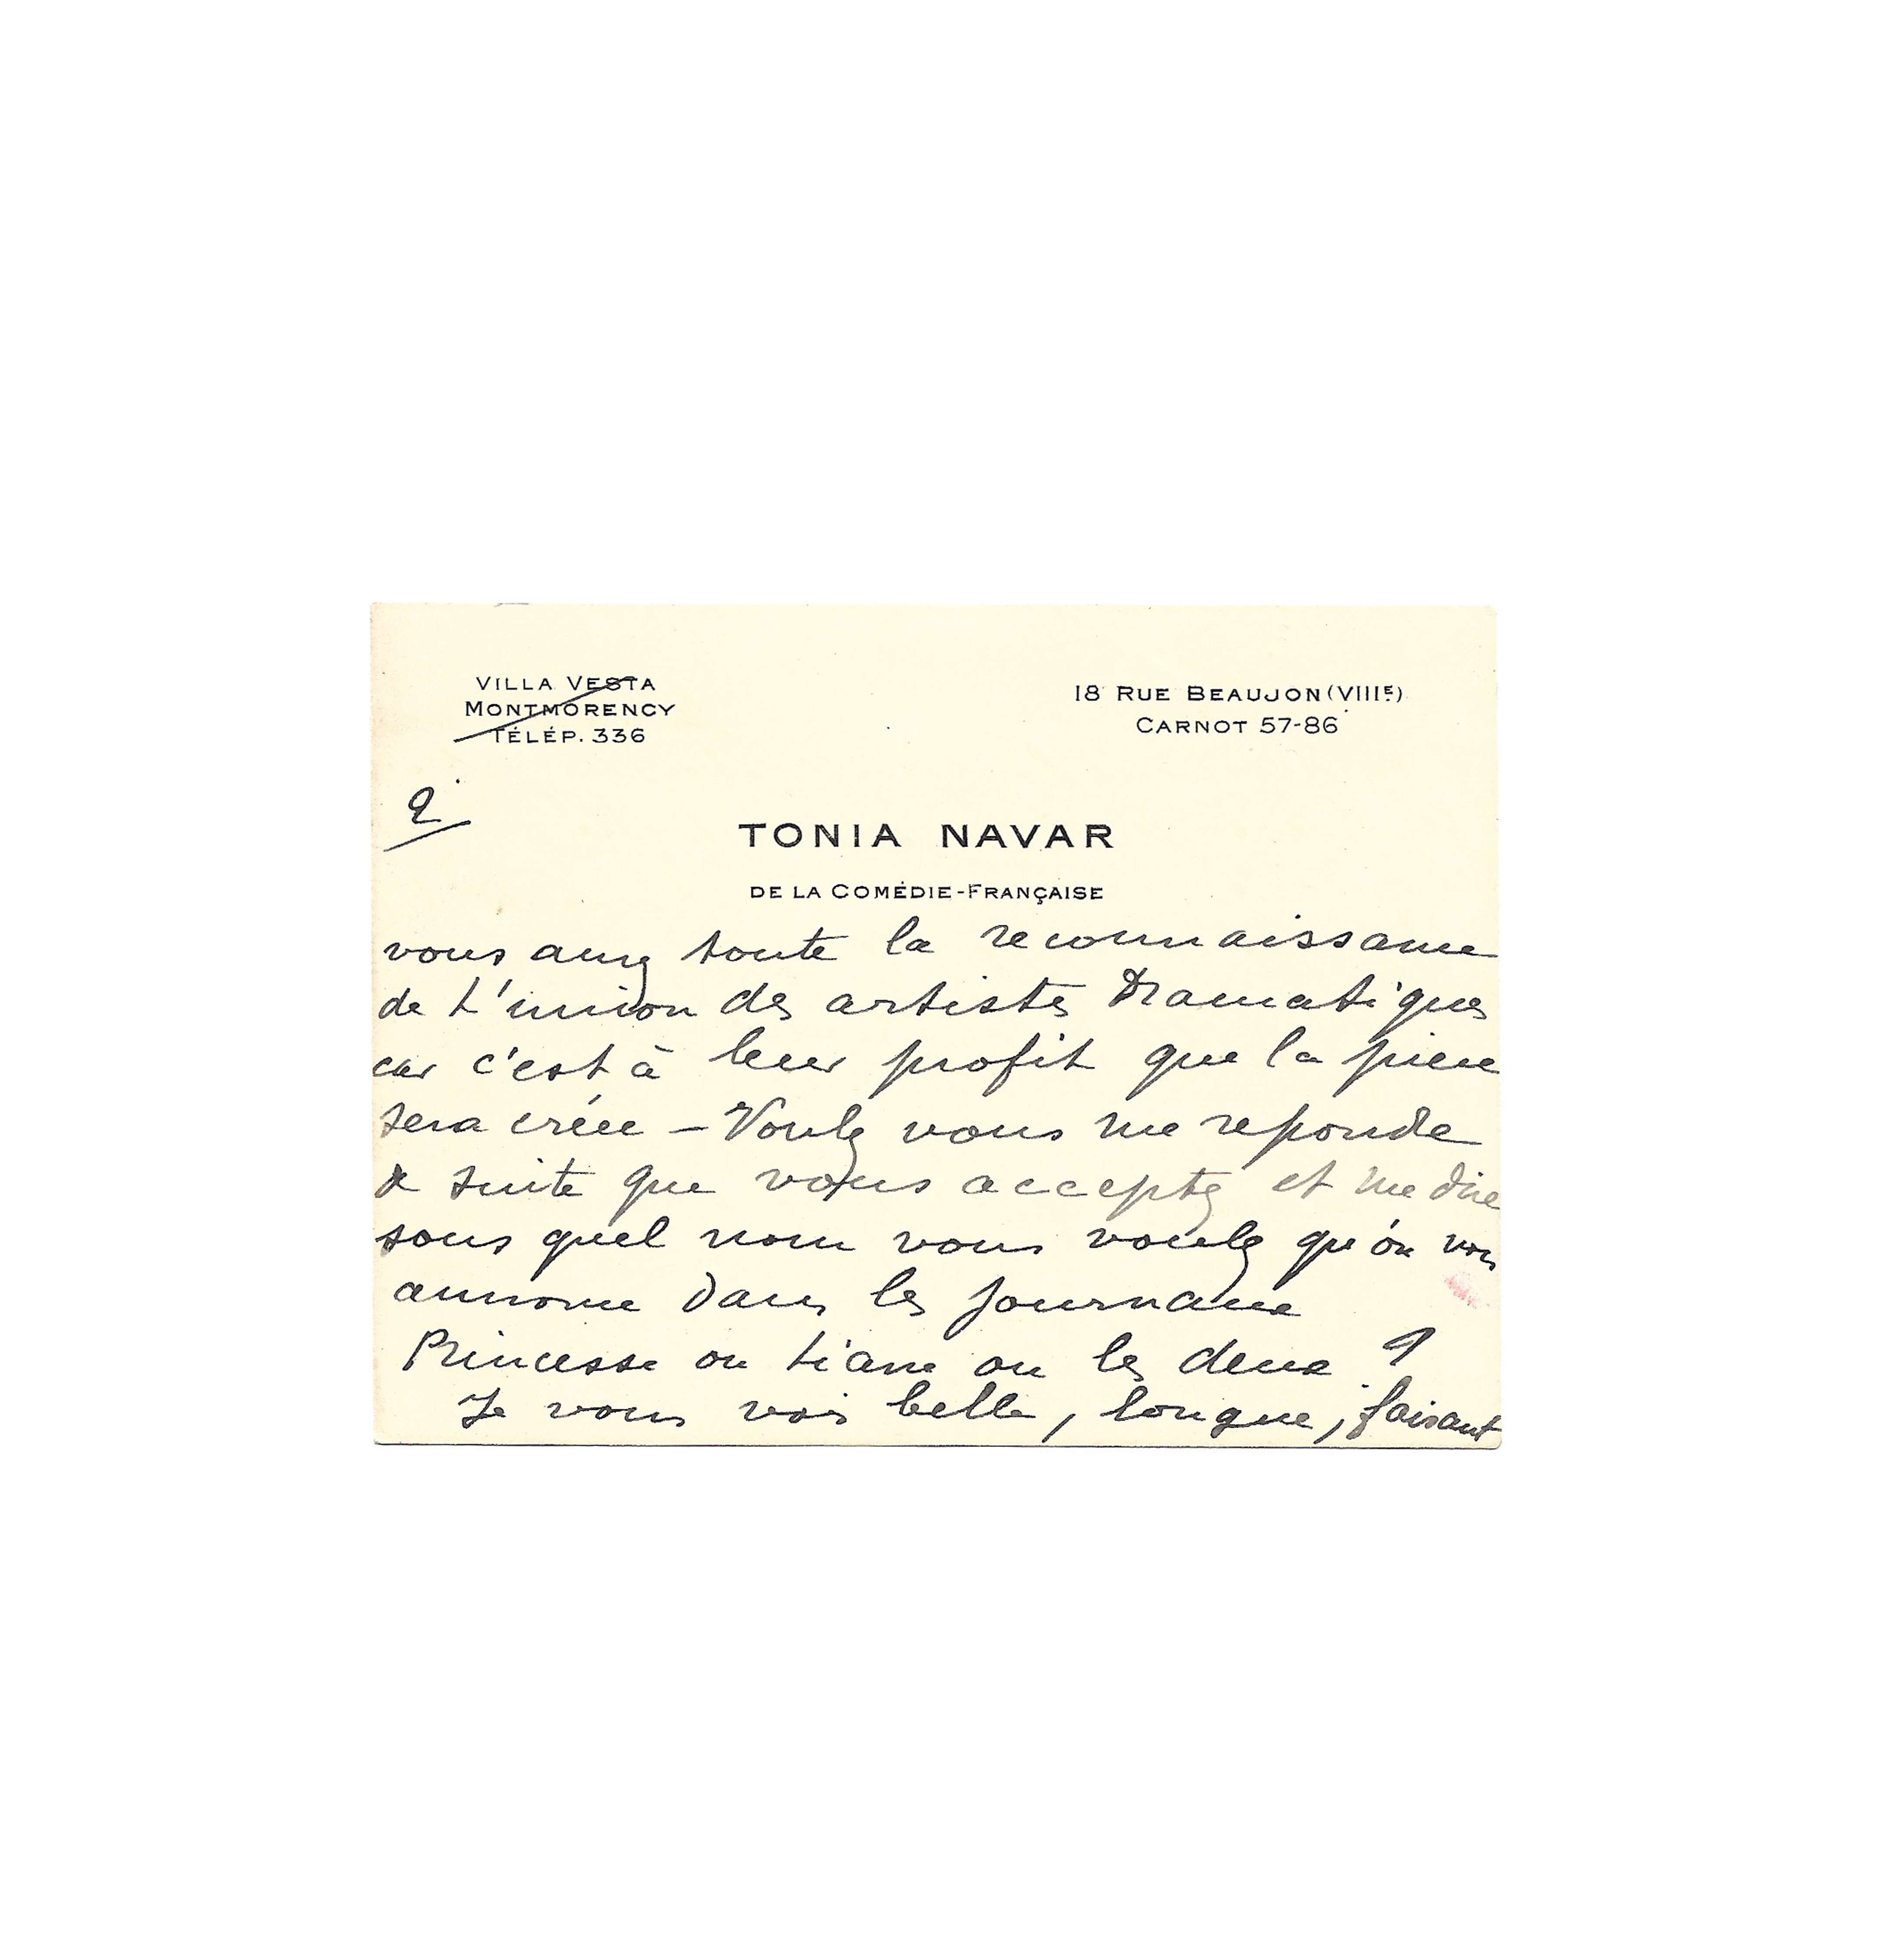 VILLA VESTA
MONTMORENCY
TÉLÉP. 336
18 RUE BEAUJON (VIIIE)
CARNOT 57-86
2
TONIA NAVAR
DE LA COMÉDIE-FRANÇAISE
vous aurez toute la reconnaissance
de L'union des artistes Dramatiques
car c'est à leur profit que la piece
sera créée – Voulez vous me reponde
de suite que vous acceptez et me dire
sous quel nom vous voulez qu'on vous
annonce dans les journaux
Princesse ou Liane ou les deux ?
Je vous vois belle, longue, faisant